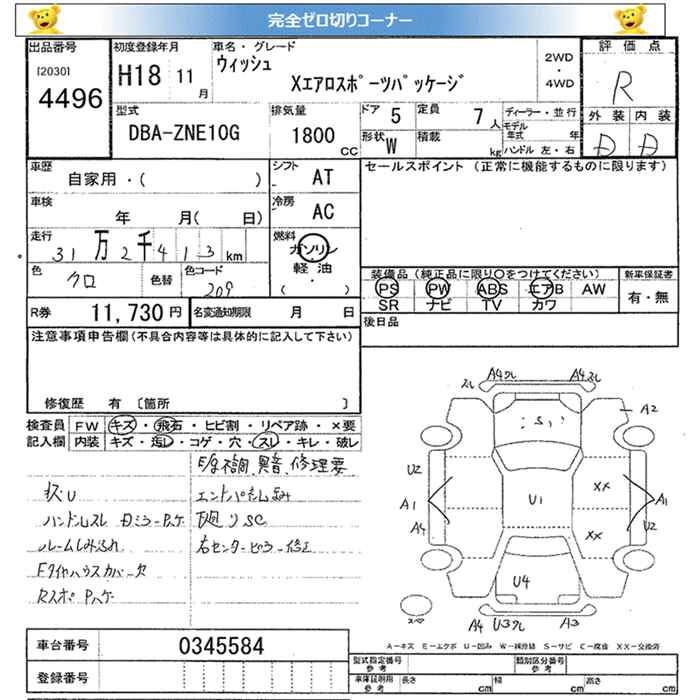 完全ゼロ切りコーナー
出品番号 初度登録年月 車名・グレード 評価点
[2030] 4496
H18 11月
ウィッシュ
Xエアロスポーツパッケージ
2WD・4WD
R
型式 排気量 ドア 5 定員 7人 ディーラー・並行
DBA-ZNE10G 1800cc
形状 W 積載 kg モデル年式 年
ハンドル 左・右
外装 内装
D D
車歴 自家用・( ) シフト AT
セールスポイント (正常に機能するものに限ります)
車検 年 月( 日) 冷房 AC
走行 31万2千413km 燃料 ガソリン 軽油 ( ・ )
色 クロ 色替 色コード 209
装備品 (純正品に限り○をつけてください) 新車保証書
PS PW ABS エアB AW 有・無
SR ナビ TV カワ
R券 11,730円 名変通知期限 月 日
後日品
注意事項申告欄(不具合内容等は具体的に記入して下さい)
修復歴 有 [箇所 ]
検査員 FW キズ・飛石・ヒビ割・リペア跡・×要
記入欄 内装 キズ・汚レ・コゲ・穴・スレ・キレ・破レ
E/g不調、異音、修理要
エンドパネル歪み
廻りSC
右センターピラー修正
ハンドルスレ Dミラーカバーヤケ
ルームしみ汚れ
Fタイヤハウスカバー欠
Rスポ Pハゲ
スレ A4クレ A4スレ
A2
U2 A1 A4
U1
XX
XX
A1
U2
U4
スペア
A4 U3クレ A3
A-キズ E-エクボ U-凹み W-補修跡 S-サビ C-腐食 XX-交換済
車台番号 0345584
登録番号
型式指定番号 参考 類別区分番号 参考
車庫証明用 参考 長さ cm 幅 cm 高さ cm